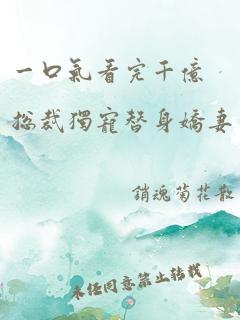 一口氣看完千億
總裁獨寵替身嬌妻
銷魂菊花散
未经同意禁止转载